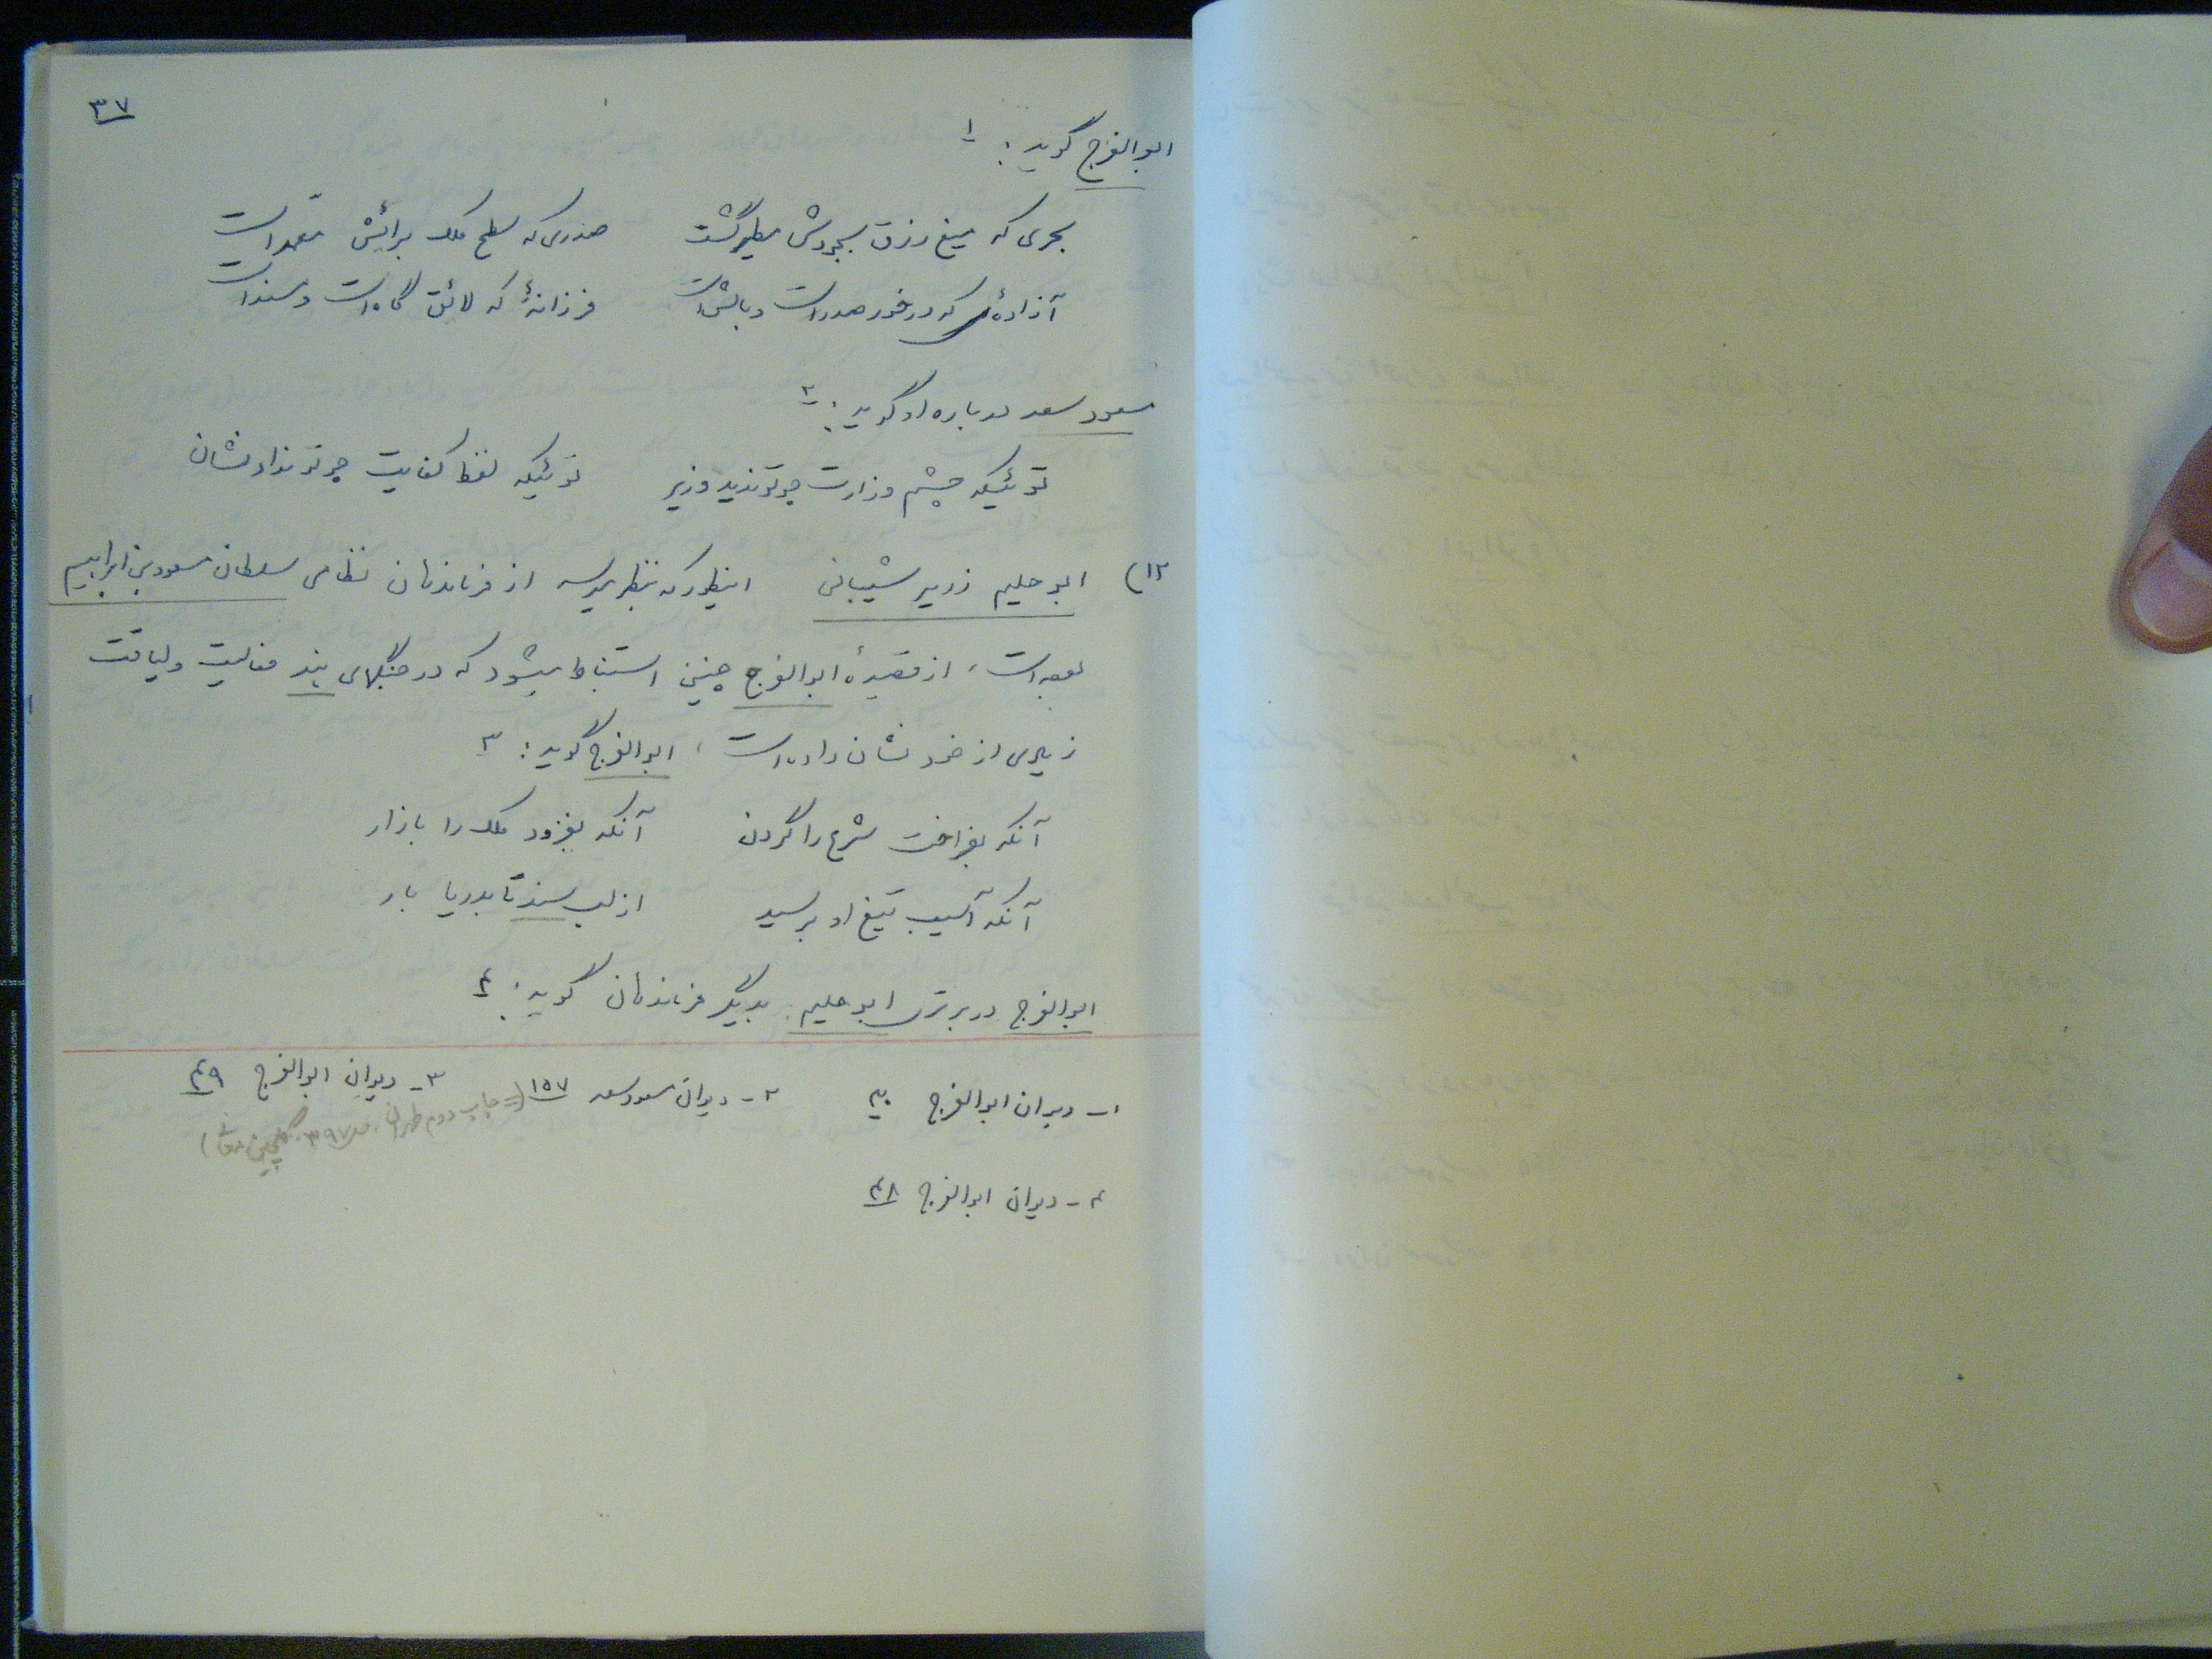 ۳۷
ابوالفرج گوید: ۱
بحری که میغ رزق بجودش مطیر گشت صدری که سطح ملک برائش ممهد است
آزادهٔ که در خور صدر است و بالش است فرزانهٔ که لائق گاه است و مسند است
مسعود سعد درباره او گوید: ۲
توئیکه چشم وزارت چو تو ندید وزیر توئیکه لفظ کفایت چو تو نداد نشان
۱۲) ابوحلیم زریر شیبانی اینطور که بنظر میرسد از فرماندهان نظامی سلطان مسعود بن ابراهیم
بوده است، از قصیدهٔ ابوالفرج چنین استنباط میشود که در جنگهای هند فعالیت و لیاقت
زیادی از خود نشان داده است، ابوالفرج گوید: ۳
آنکه بفراخت شرع را گردن آنکه بفزود ملک را بازار
آنکه آسیب تیغ او برسید از لب سند تا بدریا بار
ابوالفرج در برتری ابوحلیم بدیگر فرماندهان گوید: ۴
۱- دیوان ابوالفرج ۳۰ ۲- دیوان مسعود سعد ۱۵۷ (= چاپ دوم طهران، ص ۳۹۷. گلچین معانی) ۳- دیوان ابوالفرج ۴۹
۴- دیوان ابوالفرج ۴۸